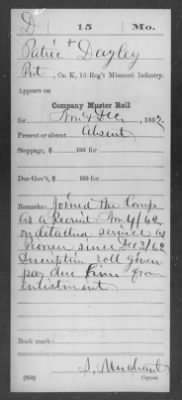 D 15 Mo.
Patric Dayley
Pvt, Co. K, 15 Reg't Missouri Infantry.
Appears on
Company Muster Roll
for Nov & Dec, 1862.
Present or absent Absent
Stoppage, $ 100 for
Due Gov't, $ 100 for
Remarks: Joined the Comp
as a Recruit Nov 4/62
on detached service as
Pioneer since Dec 3/62
Descriptive roll given
pay due him from
enlistment
Book mark:
Copyist.